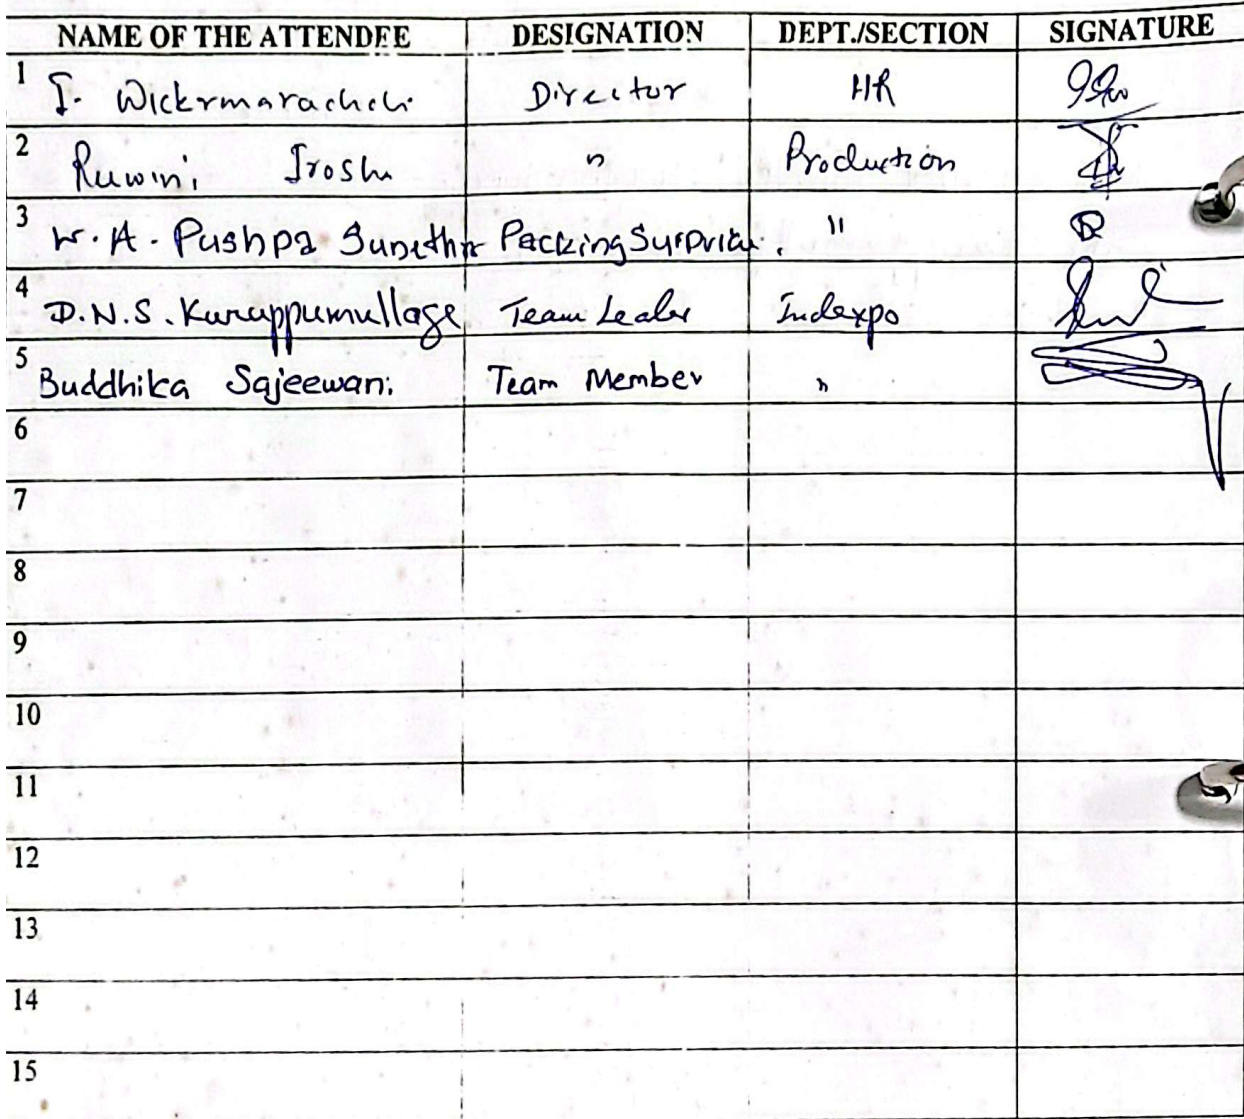 NAME OF THE ATTENDEE DESIGNATION DEPT./SECTION SIGNATURE
1 I. Wickrmarachchi Director HR
2 Ruwini Iroshi " Production
3 W. A. Pushpa Sunetha Packing Surpvice. "
4 D.N.S. Kuruppumullage Team Leader Indexpo
5 Buddhika Sajeewani Team Member "
6
7
8
9
10
11
12
13
14
15